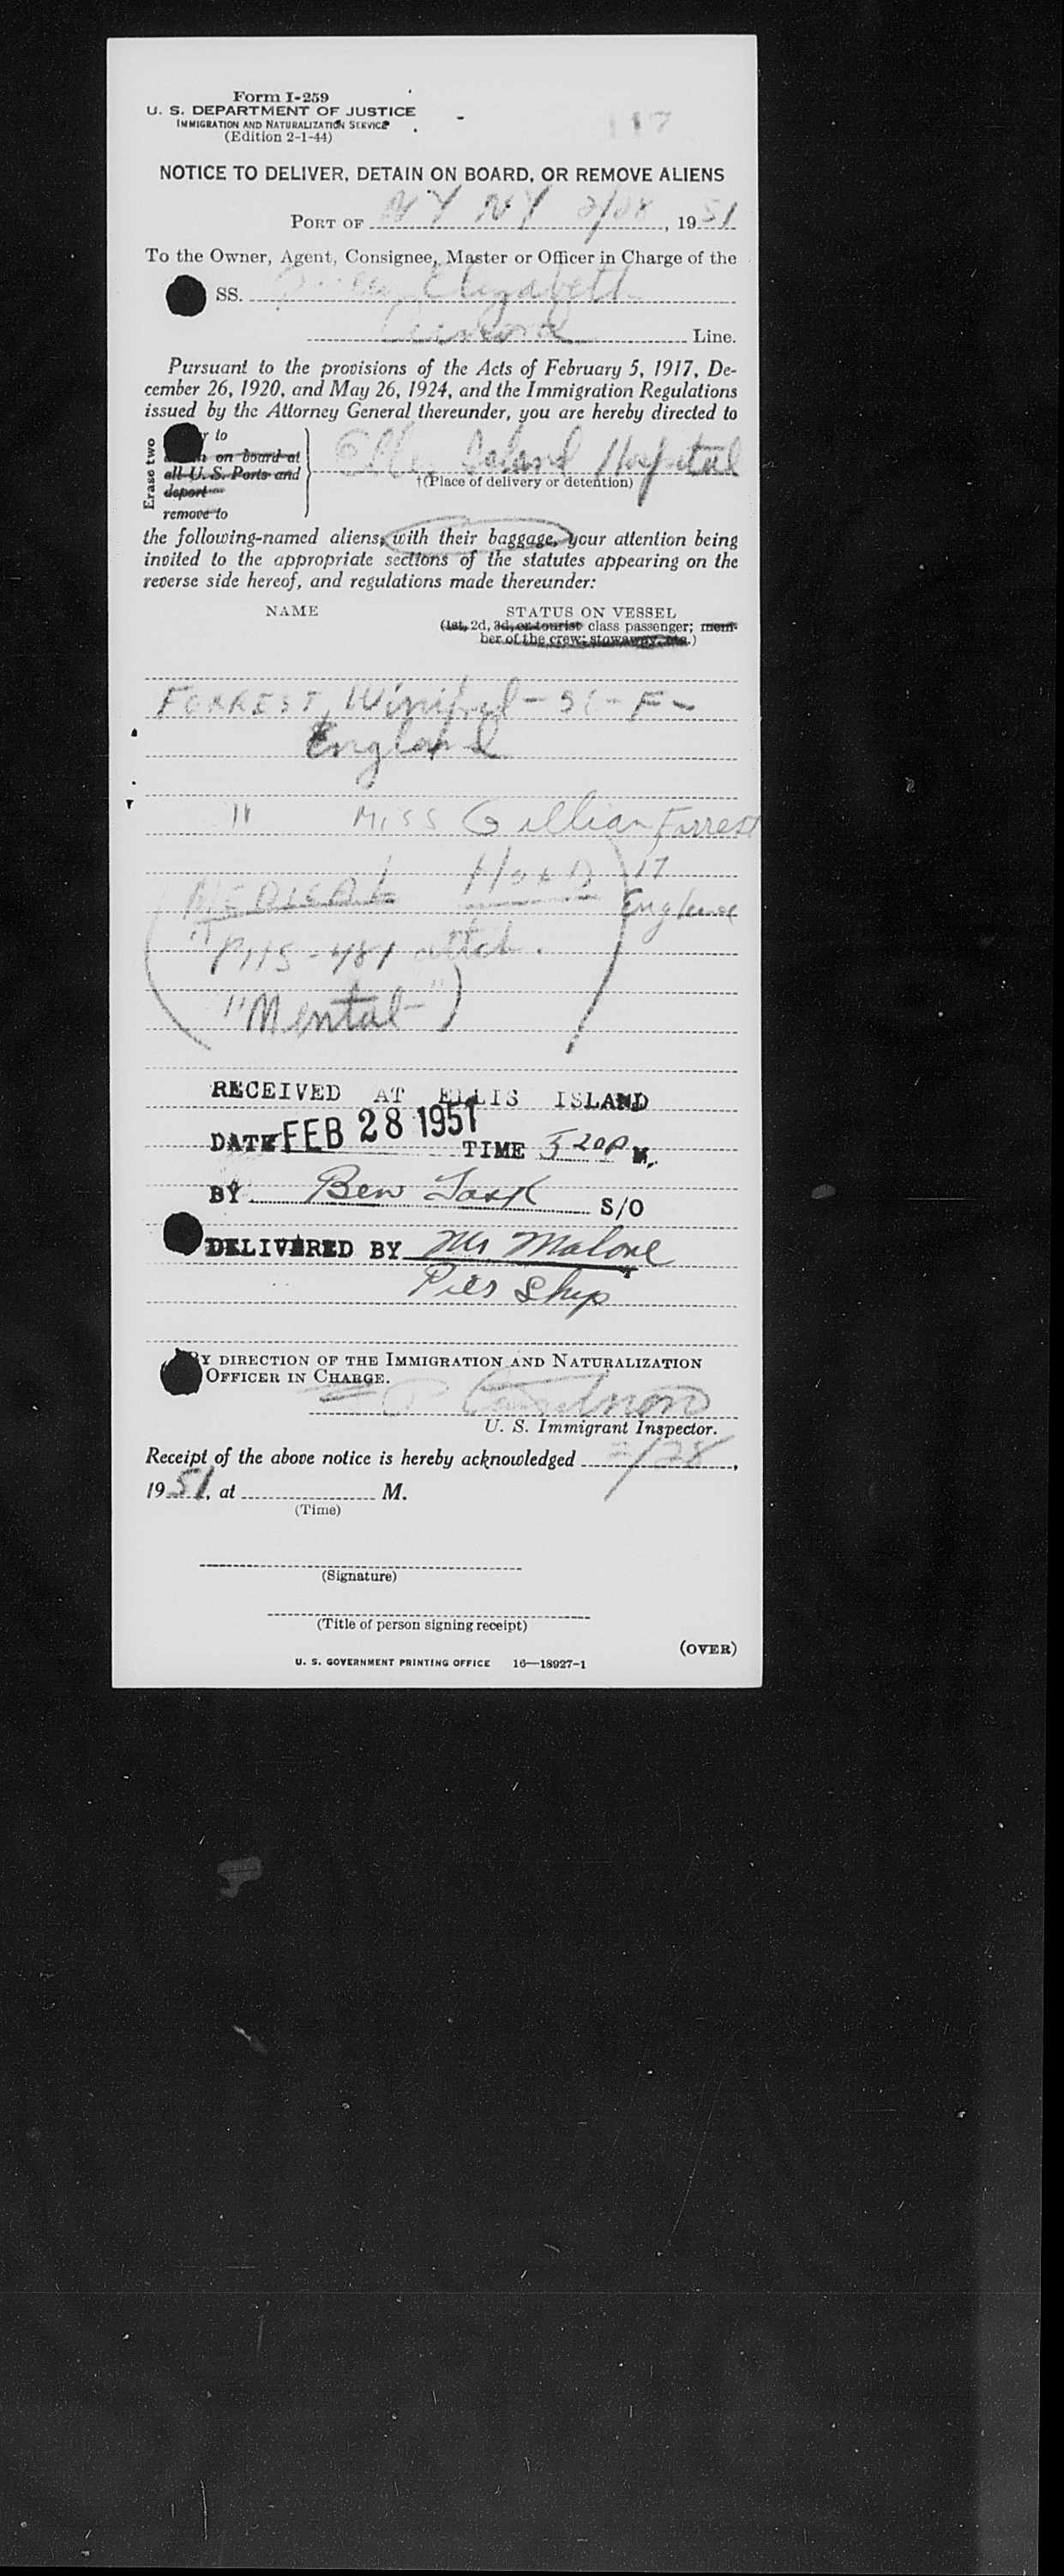 Form I-259
U. S. DEPARTMENT OF JUSTICE
IMMIGRATION AND NATURALIZATION SERVICE
(Edition 2-1-44)
117
NOTICE TO DELIVER, DETAIN ON BOARD, OR REMOVE ALIENS
PORT OF NY NY 2/28, 1951
To the Owner, Agent, Consignee, Master or Officer in Charge of the
SS. Queen Elizabeth
Cunard Line.
Pursuant to the provisions of the Acts of February 5, 1917, De-
cember 26, 1920, and May 26, 1924, and the Immigration Regulations
issued by the Attorney General thereunder, you are hereby directed to
Erase two
r to
on board at
all U. S. Ports and
deport
remove to
Ellis Island Hospital
†(Place of delivery or detention)
the following-named aliens, with their baggage, your attention being
invited to the appropriate sections of the statutes appearing on the
reverse side hereof, and regulations made thereunder:
NAME STATUS ON VESSEL
(1st, 2d, 3d, or tourist class passenger; mem-
ber of the crew; stowaway, etc.)
FORREST, Winifred - - F -
England
" Miss Gillian Forrest
17
MEDICAL HOLD England
PHS-481 attch.
"Mental")
RECEIVED AT ELLIS ISLAND
DATE FEB 28 1951 TIME 5 20P M.
BY Ben S/O
DELIVERED BY Mr Malone
Pier Ship
BY DIRECTION OF THE IMMIGRATION AND NATURALIZATION
OFFICER IN CHARGE.
U. S. Immigrant Inspector.
Receipt of the above notice is hereby acknowledged 2/28,
1951, at M.
(Time)
(Signature)
(Title of person signing receipt)
(OVER)
U. S. GOVERNMENT PRINTING OFFICE 16—18927-1